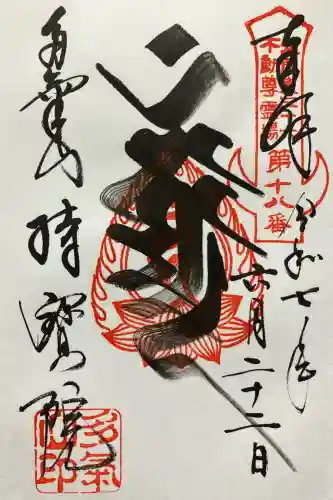 奉拝
不動尊霊場第十八番
令和七年
六月二十二日
多氣山
持寳院